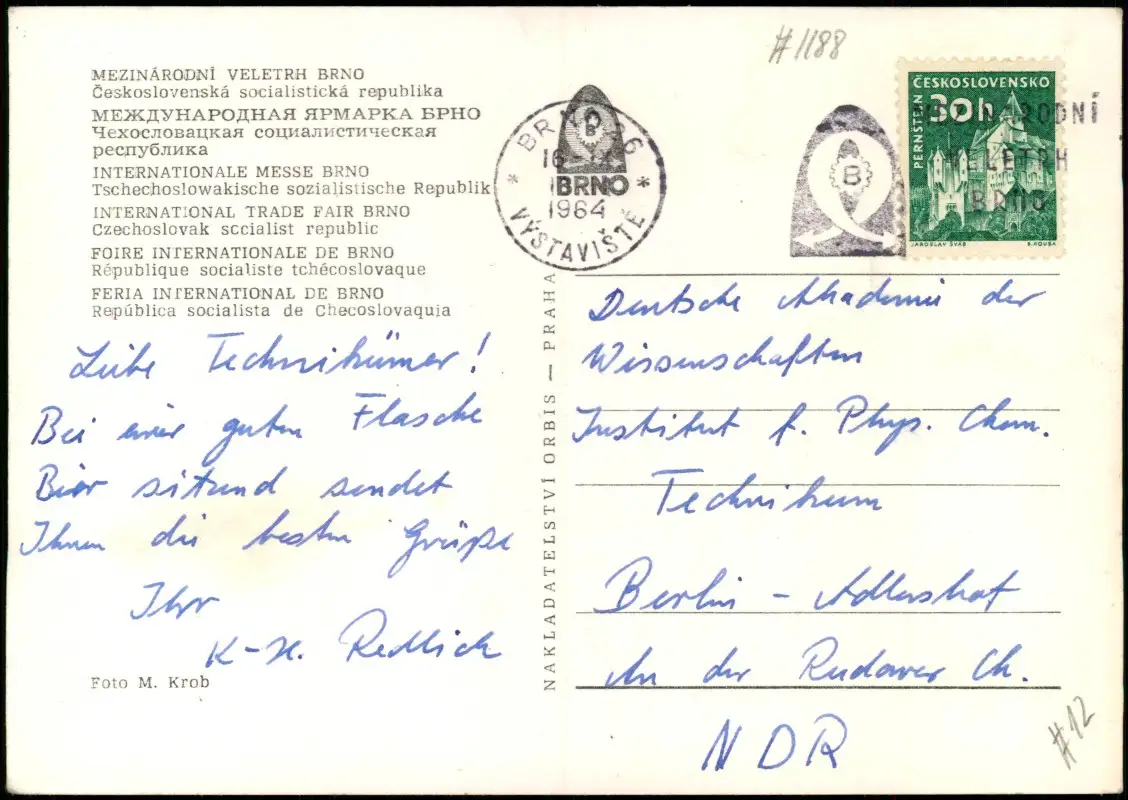 #1188
MEZINÁRODNÍ VELETRH BRNO
Československá socialistická republika
МЕЖДУНАРОДНАЯ ЯРМАРКА БРНО
Чехословацкая социалистическая
республика
INTERNATIONALE MESSE BRNO
Tschechoslowakische sozialistische Republik
INTERNATIONAL TRADE FAIR BRNO
Czechoslovak sccialist republic
FOIRE INTERNATIONALE DE BRNO
République socialiste tchécoslovaque
FERIA INTERNATIONAL DE BRNO
República socialista de Checoslovaquia
Liebe Technikümer!
Bei einer guten Flasche
Bier sitzend sendet
Ihnen die besten Grüße
Ihr
K-H. Redlich
Foto M. Krob
NAKLADATELSTVÍ ORBIS — PRAHA
BRNO 26
16
B
BRNO
1964
* VÝSTAVIŠTĚ *
B
RODNÍ
VELETRH
BRNO
ČESKOSLOVENSKO
30h
PERNŠTEJN
JAROSLAV ŠVÁB
B. ROUSA
Deutsche Akademie der
Wissenschaften
Institut f. Phys. Chem.
Technikum
Berlin - Adlershof
An der Rudower Ch.
NDR
#12